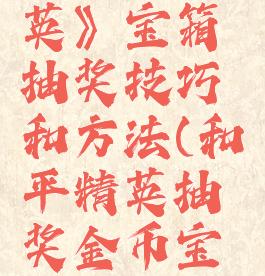 英》宝箱
抽奖技巧
和方法(和
平精英抽
奖金币宝